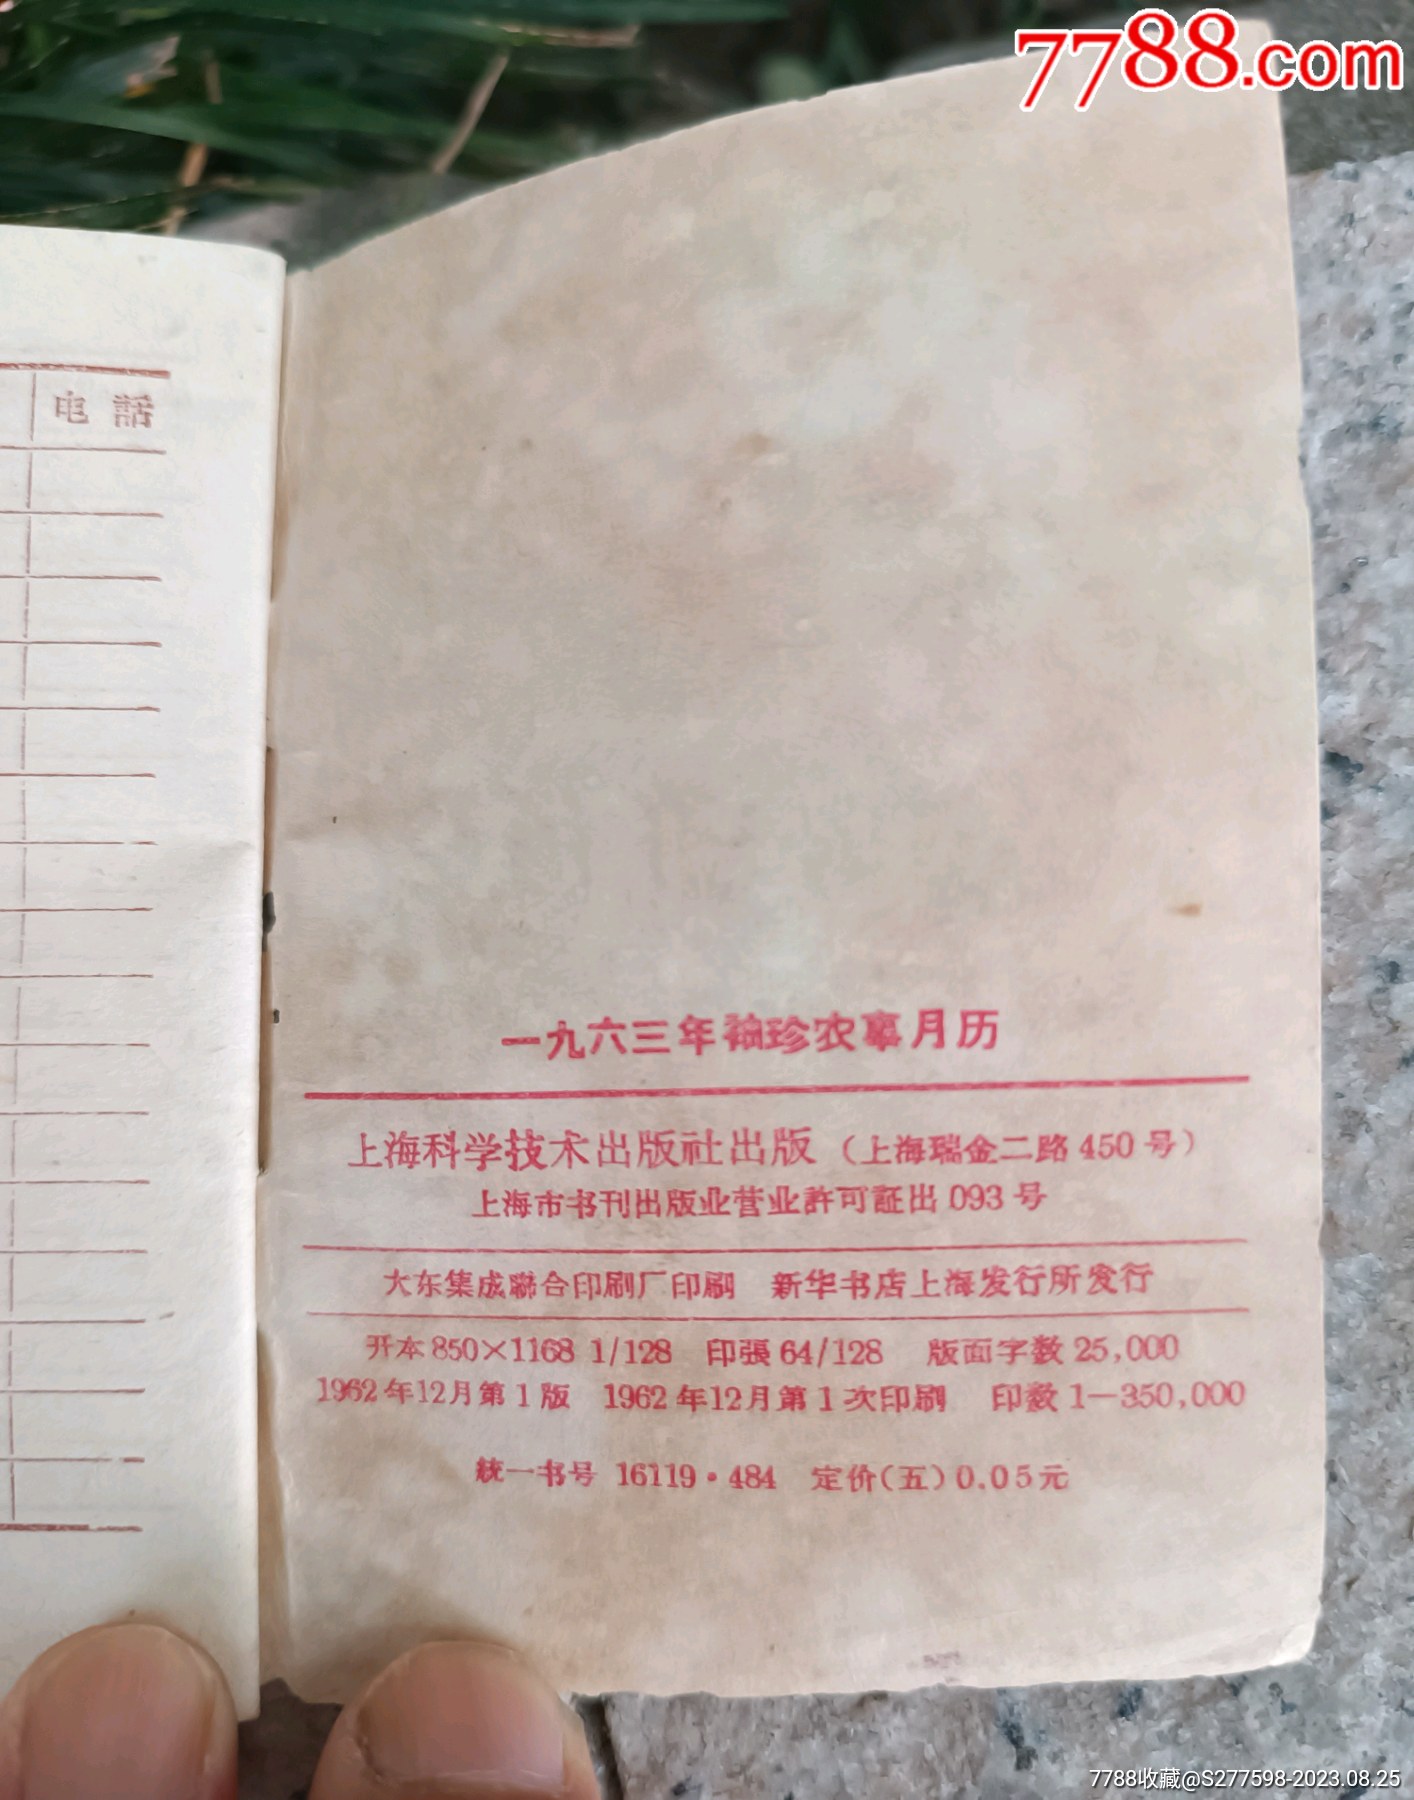 7788.com
电話
一九六三年袖珍农事月历
上海科学技术出版社出版（上海瑞金二路450号）
上海市书刊出版业营业許可証出093号
大东集成聯合印刷厂印刷 新华书店上海发行所发行
开本850×1168 1/128 印張64/128 版面字数25,000
1962年12月第1版 1962年12月第1次印刷 印数1—350,000
統一书号 16119·484 定价(五)0.05元
7788收藏@S277598-2023.08.25